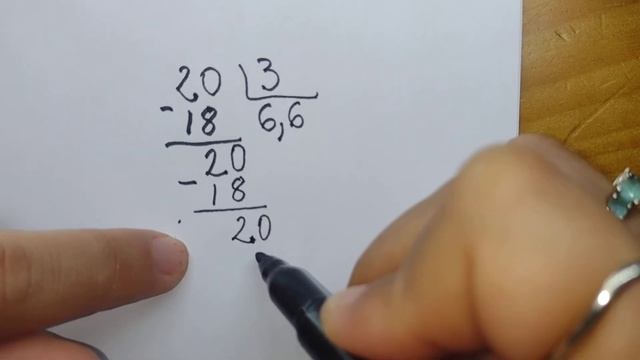 20 3
-18 6,6
20
-18
20